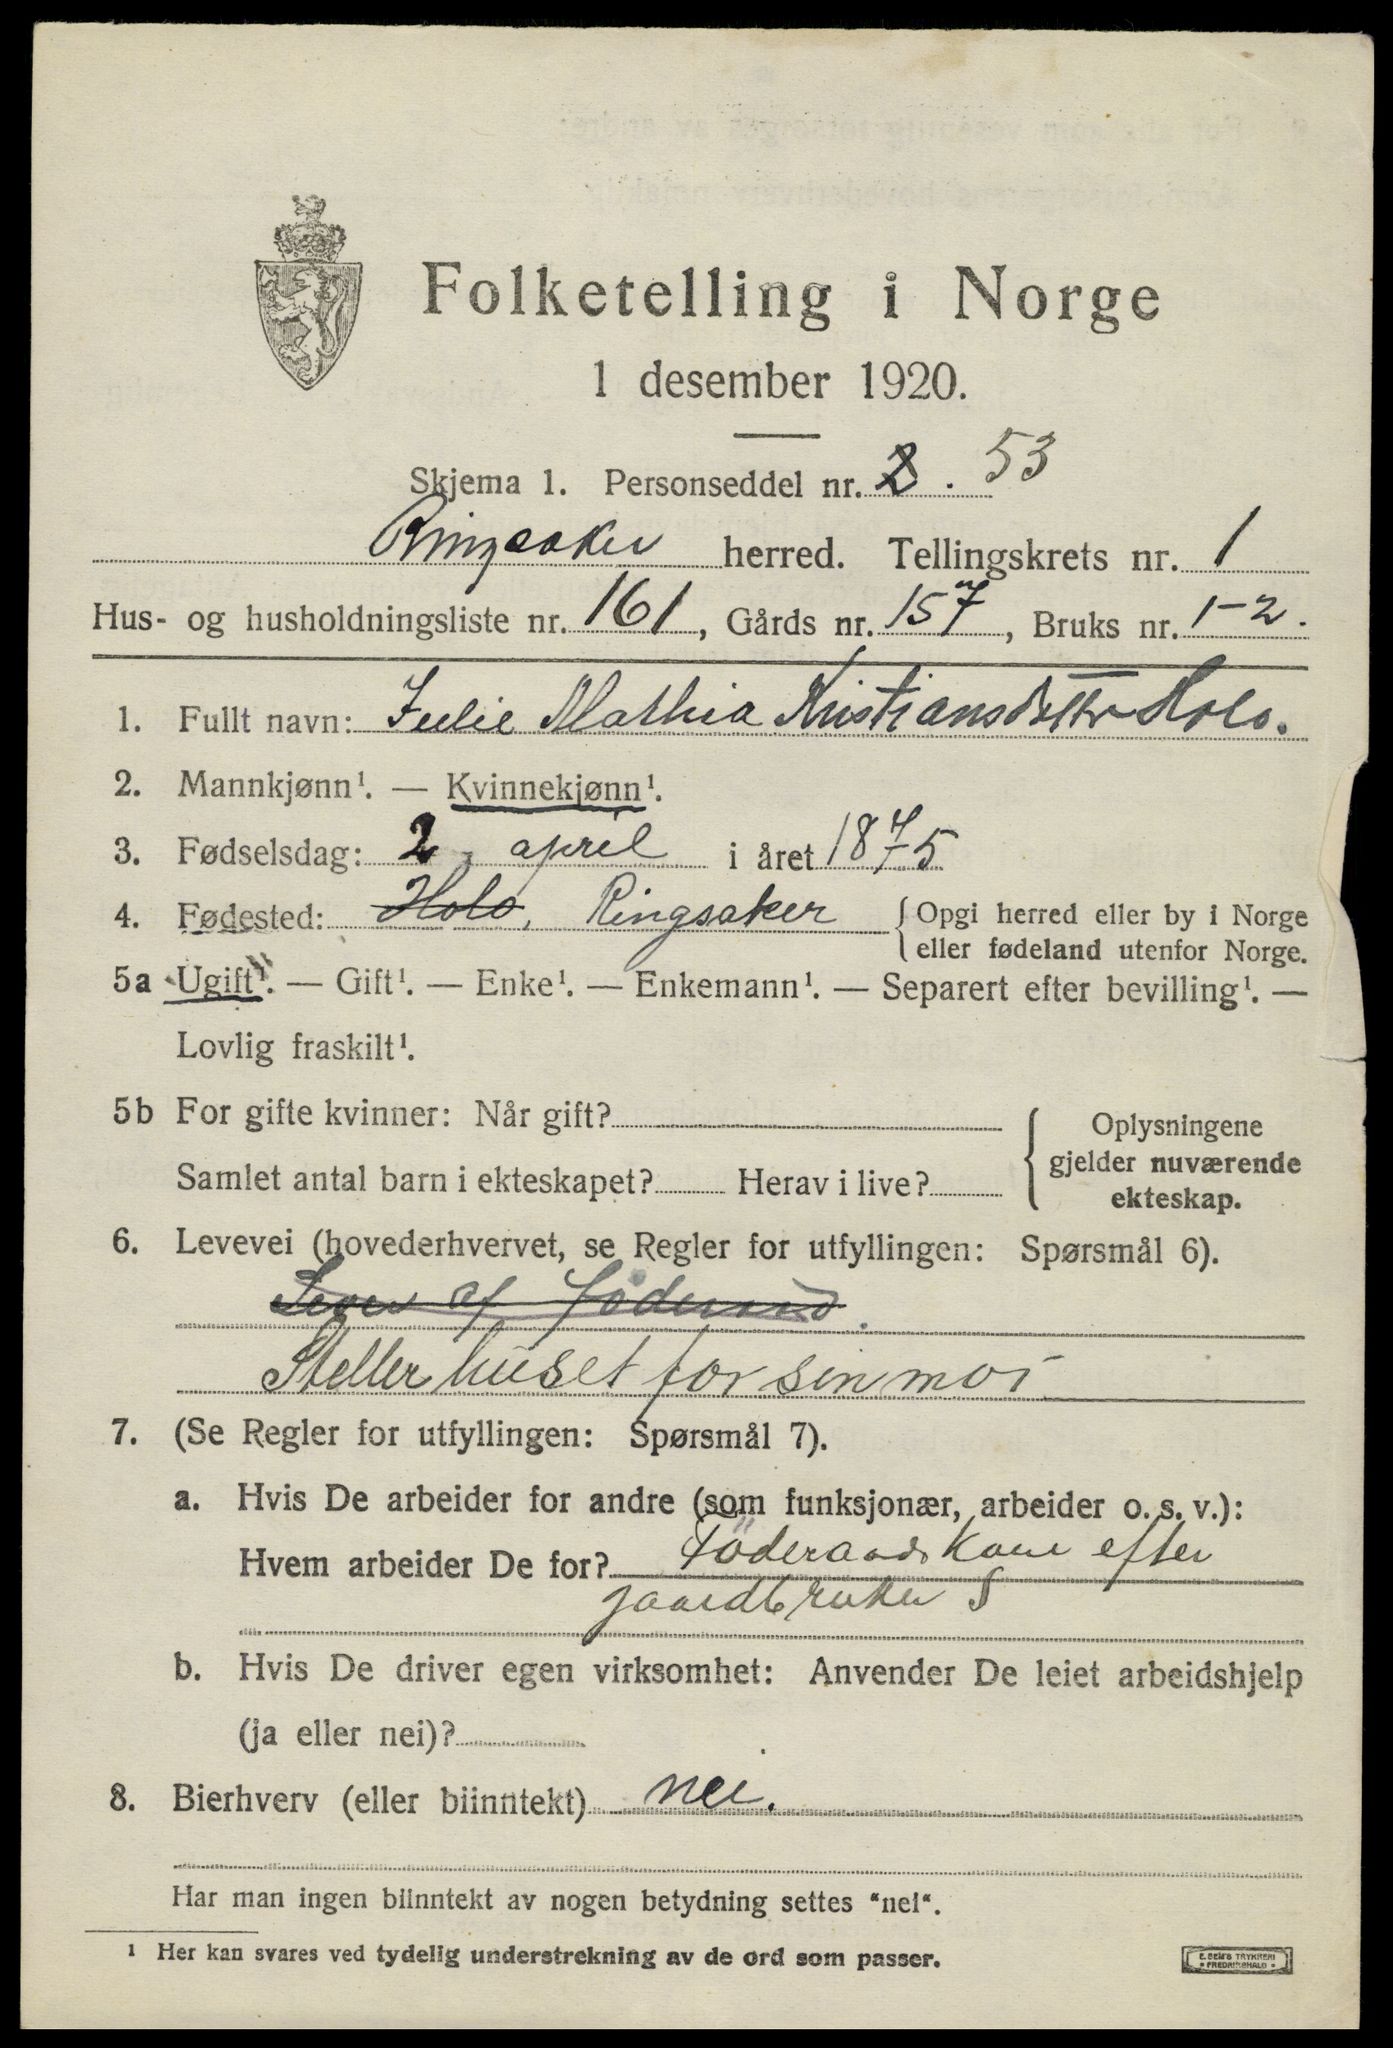 Folketelling i Norge
1 desember 1920.
Skjema 1. Personseddel nr. 2. 53
Ringsaker herred. Tellingskrets nr. 1
Hus- og husholdningsliste nr. 161, Gårds nr. 157, Bruks nr. 1-2.
1. Fullt navn: Julie Mathia Kristiansdatter Holo.
2. Mannkjønn¹. — Kvinnekjønn¹.
3. Fødselsdag: 2. april i året 1875
4. Fødested: Holo, Ringsaker { Opgi herred eller by i Norge
eller fødeland utenfor Norge.
5a Ugift¹. — Gift¹. — Enke¹. — Enkemann¹. — Separert efter bevilling¹. —
Lovlig fraskilt¹.
5b For gifte kvinner: Når gift? { Oplysningene
gjelder nuværende
Samlet antal barn i ekteskapet? Herav i live? ekteskap.
6. Levevei (hovederhvervet, se Regler for utfyllingen: Spørsmål 6).
Lever af Föderaad.
Steller huset for sin mor
7. (Se Regler for utfyllingen: Spørsmål 7).
a. Hvis De arbeider for andre (som funksjonær, arbeider o. s. v.):
Hvem arbeider De for? Föderaads Kone efter
gaardbruker S
b. Hvis De driver egen virksomhet: Anvender De leiet arbeidshjelp
(ja eller nei)?
8. Bierhverv (eller biinntekt) nei.
Har man ingen biinntekt av nogen betydning settes "nei".
1 Her kan svares ved tydelig understrekning av de ord som passer.
E. SEM'S TRYKKERI
FREDRIKSHALD